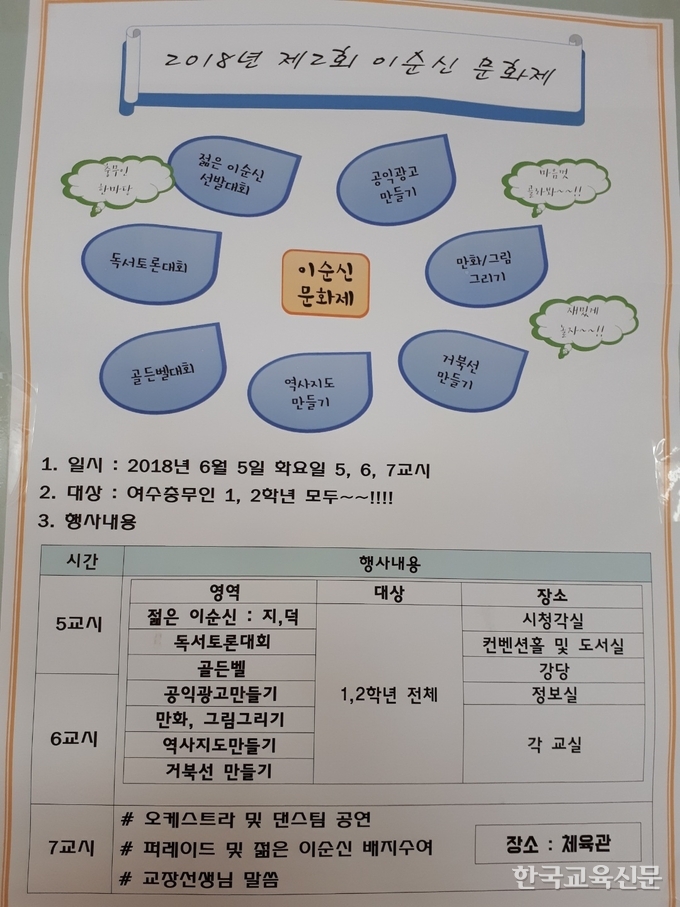 2018년 제2회 이순신 문화제
충무인
한마당
젊은 이순신
선발대회
공익광고
만들기
마음껏
골라봐~~!!
독서토론대회
이순신
문화제
만화/그림
그리기
재밌게
놀자~~!!
골든벨대회
역사지도
만들기
거북선
만들기
1. 일시 : 2018년 6월 5일 화요일 5, 6, 7교시
2. 대상 : 여수충무인 1, 2학년 모두~~!!!!
3. 행사내용
시간 행사내용
영역 대상 장소
5교시
젊은 이순신 : 지,덕 시청각실
독서토론대회 컨벤션홀 및 도서실
골든벨 강당
공익광고만들기 1,2학년 전체 정보실
6교시
만화, 그림그리기
역사지도만들기 각 교실
거북선 만들기
7교시
# 오케스트라 및 댄스팀 공연
# 퍼레이드 및 젊은 이순신 배지수여
# 교장선생님 말씀
장소 : 체육관
한국교육신문